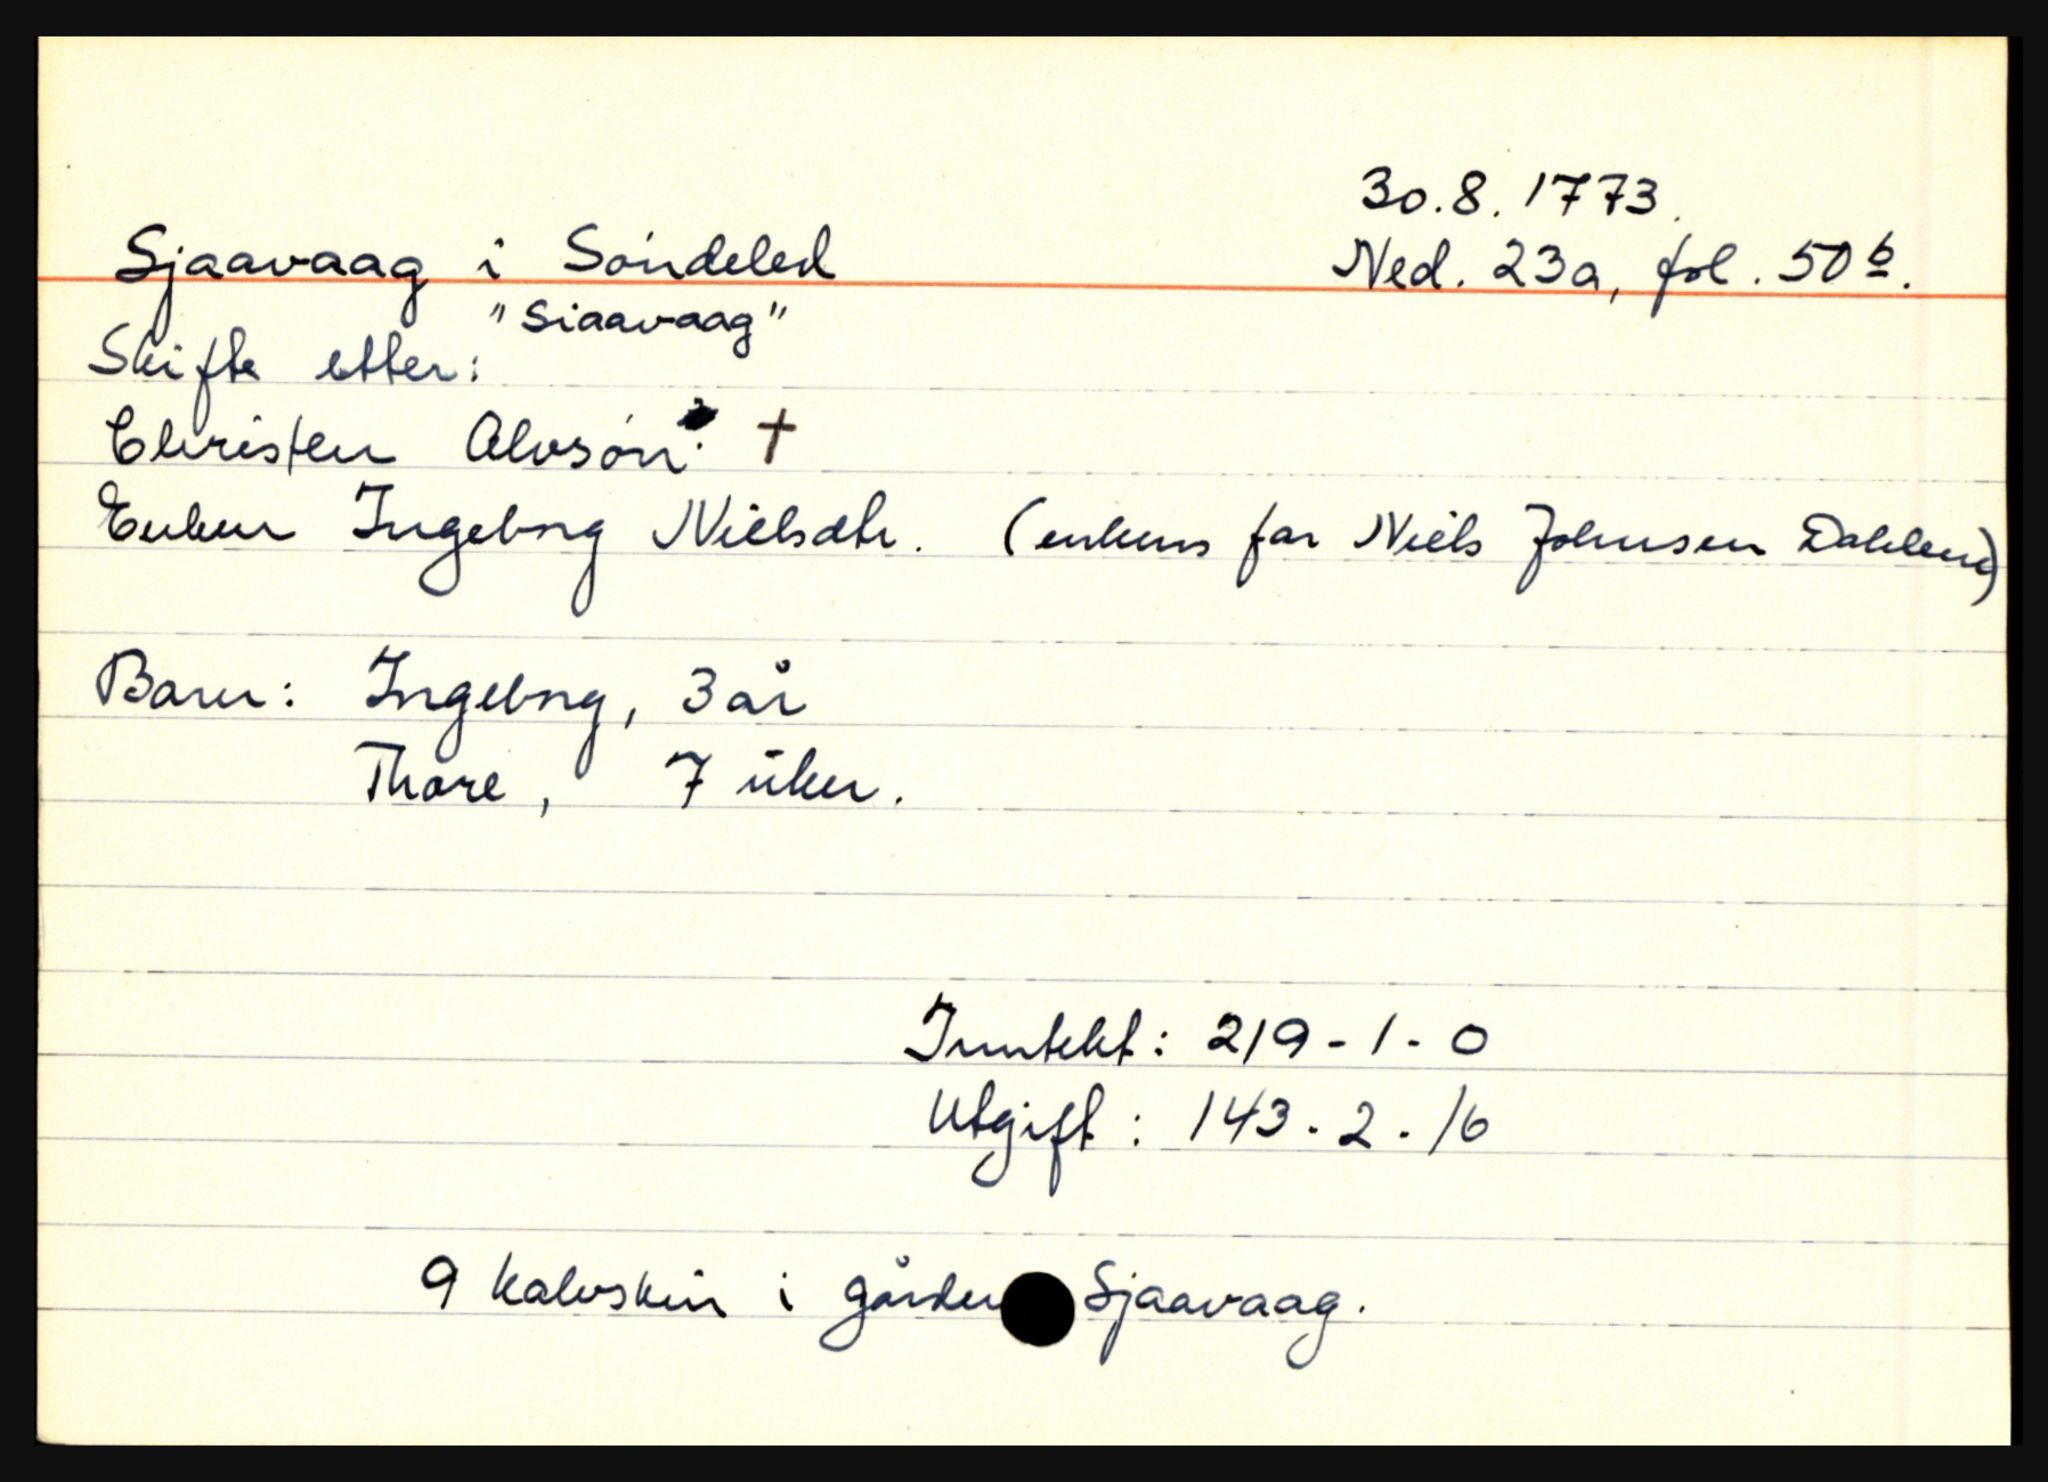 30.8.1773.
Sjaavaag i Söndeled Ned. 23a, fol. 50b.
"Siaavaag"
Skifte etter:
Christen Alvsön. †
Enken Ingeborg Nielsdtr. (enkens far Niels Johnsen Dahlen)
Barn: Ingeborg, 3 år
Thore, 7 uker.
Inntekt: 219-1-0
Utgift: 143.2.16
9 kalvskin i gården Sjaavaag.